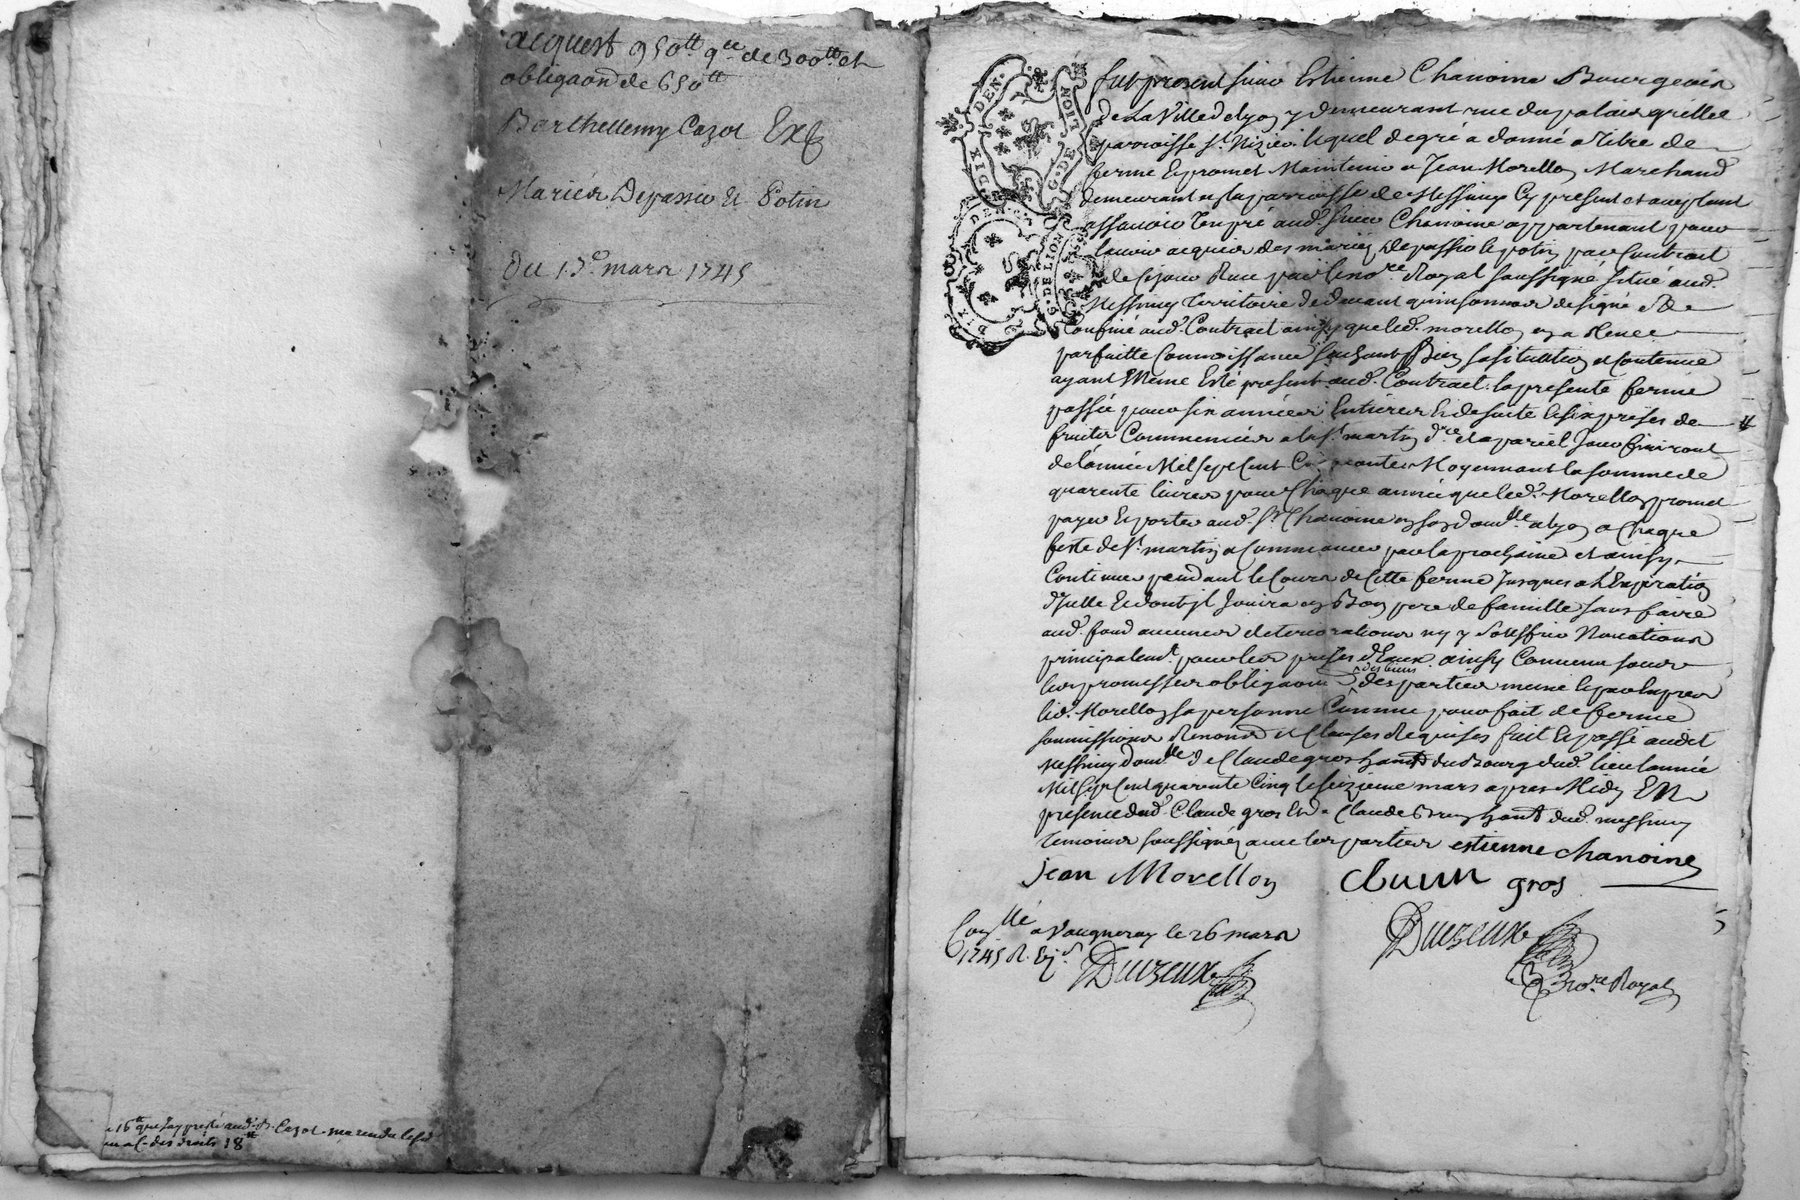 acquest 950tt qce de 300tt et
obligaon de 650tt
Barthellemy Cazot Exp
Mariés Depassio & Potin
Du 15e mars 1745
16tt que j'ay presté aud. Sr. Cazot
des droits 18tt
G. DE LION
DIX DEN.
G. DE LION
DIX DEN.
fut present sieur Estienne Chanoine Bourgeois
de la Ville de Lyon y demeurant rue du palais grillet
parroisse st. Nizier lequel de gré a donné a titre de
ferme & promet Maintenir a Jean Morellon Marchand
demeurant en la parroisse de Messimy Cy present et acceptant
assavoir Un pré aud. sieur Chanoine appartenant pour
lavoir acquis des mariez Depassio & potin par Contrait
de Cejour Receu par le nore. Royal soussigné situé aud.
Messimy territoire de devant quinsonnas designé & De
Confiné aud. Contrait ainsy que led. morellon en a Heuee
parfaitte Connoissance sachant Bien sa situation et Contenue
ayant Meme Esté present aud. Contrait. la presente ferme
passée pour six années Entieres & de suite & six prises de
fruits Commencées a la st. martin dre. et a pareil Jour finiront
de l'année Mil sept Cent Cinquante Moyennant la somme de
quarente livres pour Chaque année que led. Morellon promet
payer & porter aud. sr. Chanoine en son domlle a Lyon a Chaque
feste de st. martin a Commancer par la prochaine et ainsy
Continuer pendant le Cours de Cette ferme Jusques a L'Expiration
d'Icelle & dont il Jouira en Bon pere de famille sans faire
aud. fond aucunes deteriorations ny y souffrir Novations
principalemt. pour les prises d'Eaux. ainsy Convenu sous
les promesses obligaons des biens des parties meme & par Expres
led. Morellon sa personne Comme pour fait de ferme
soumissions Renonons et Clauses Requises fait & passé audit
Messimy domlle de Claude gros habitt du Bourg dud. lieu l'année
Mil sept Cent quarente Cinq le seizieme mars apres Midy EN
presence dud. Claude gros & de Claude habitt dud. messimy
temoins soussignéz avec les parties estienne chanoine
jean Morellon gros
Conllé a Vaugneray le 26 mars
1745 R.
Duizeux
Duizeux
nore Royal